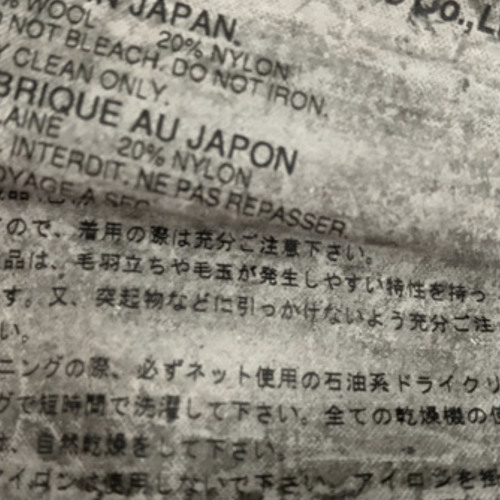 Co., L
N JAPAN.
% WOOL 20% NYLON
O NOT BLEACH. DO NOT IRON.
Y CLEAN ONLY.
BRIQUE AU JAPON
LAINE 20% NYLON
INTERDIT. NE PAS REPASSER.
OYAGE A SEC
ので、着用の際は充分ご注意下さい。
品は、毛羽立ちや毛玉が発生しやすい特性を持っ
す。又、突起物などに引っかけないよう充分ご注
い。
ニングの際、必ずネット使用の石油系ドライクリ
グで短時間で洗濯して下さい。全ての乾燥機の使
は、自然乾燥をして下さい。
アイロンは使用しないで下さい。アイロンを